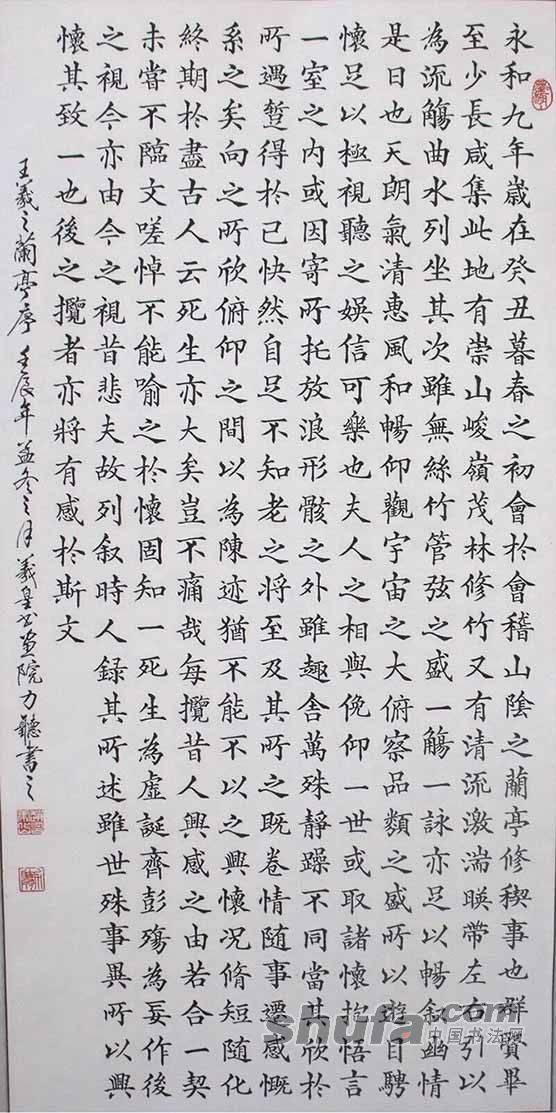 永和九年歲在癸丑暮春之初會於會稽山陰之蘭亭修稧事也群賢畢
至少長咸集此地有崇山峻嶺茂林修竹又有清流激湍暎帶左右引以
為流觴曲水列坐其次雖無絲竹管弦之盛一觴一詠亦足以暢叙幽情
是日也天朗氣清惠風和暢仰觀宇宙之大俯察品類之盛所以遊目騁
懷足以極視聽之娛信可樂也夫人之相與俛仰一世或取諸懷抱悟言
一室之內或因寄所托放浪形骸之外雖趣舍萬殊靜躁不同當其欣於
所遇蹔得於己快然自足不知老之將至及其所之既卷情随事遷感慨
系之矣向之所欣俯仰之間以為陳迹猶不能不以之興懷况脩短隨化
終期於盡古人云死生亦大矣豈不痛哉每攬昔人興感之由若合一契
未嘗不臨文嗟悼不能喻之於懷固知一死生為虛誕齊彭殤為妄作後
之視今亦由今之視昔悲夫故列叙時人錄其所述雖世殊事異所以興
懷其致一也後之攬者亦將有感於斯文
王羲之蘭亭序 壬辰年孟冬之月羲皇书画院力聽書之
shufa.com
中国书法网